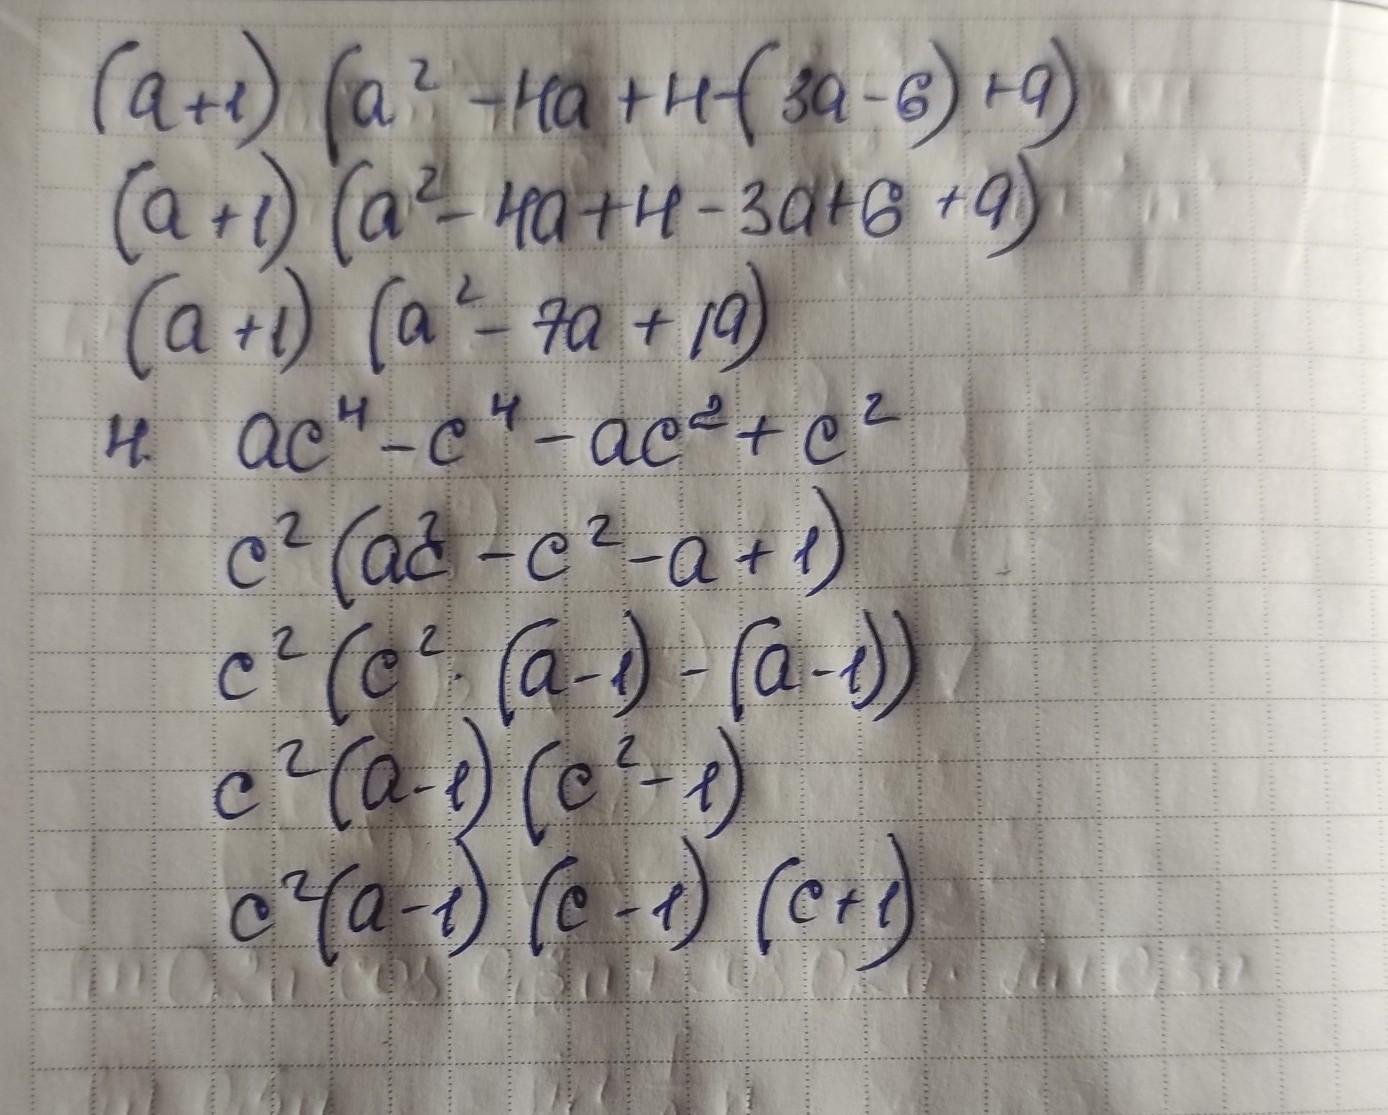 (a+1) (a² - 4a + 4 - (3a - 6) + 9)
(a + 1) (a² - 4a + 4 - 3a + 6 + 9)
(a + 1) (a² - 7a + 19)
4. ac⁴ - c⁴ - ac² + c²
c² (ac² - c² - a + 1)
c² (c² · (a - 1) - (a - 1))
c² (a - 1) (c² - 1)
c² (a - 1) (c - 1) (c + 1)